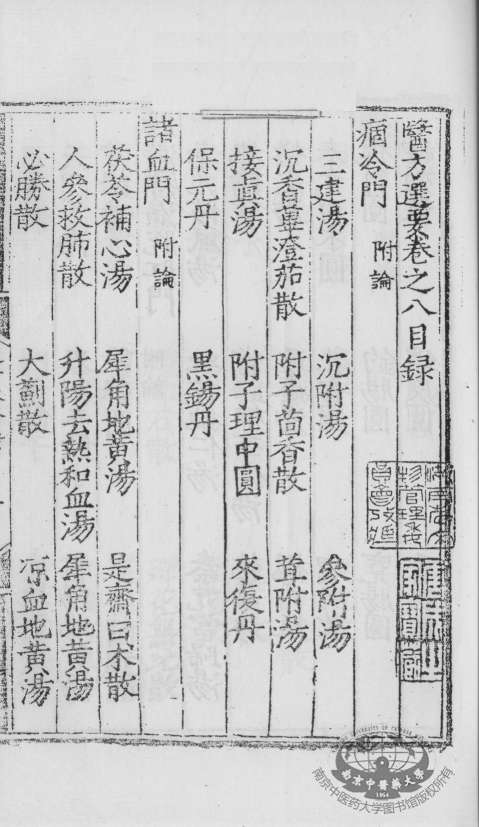 醫方選要卷之八目錄
痼冷門 附論
三建湯 沉附湯 參附湯
沉香蓽澄茄散 附子茴香散 茸附湯
接真湯 附子理中圓 來復丹
保元丹 黑錫丹
諸血門 附論
茯苓補心湯 犀角地黃湯 是齋白术散
人參救肺散 升陽去熱和血湯 犀角地黃湯
必勝散 大薊散 凉血地黃湯
南京中醫藥大學
1954
南京中医药大学图书馆版权所有